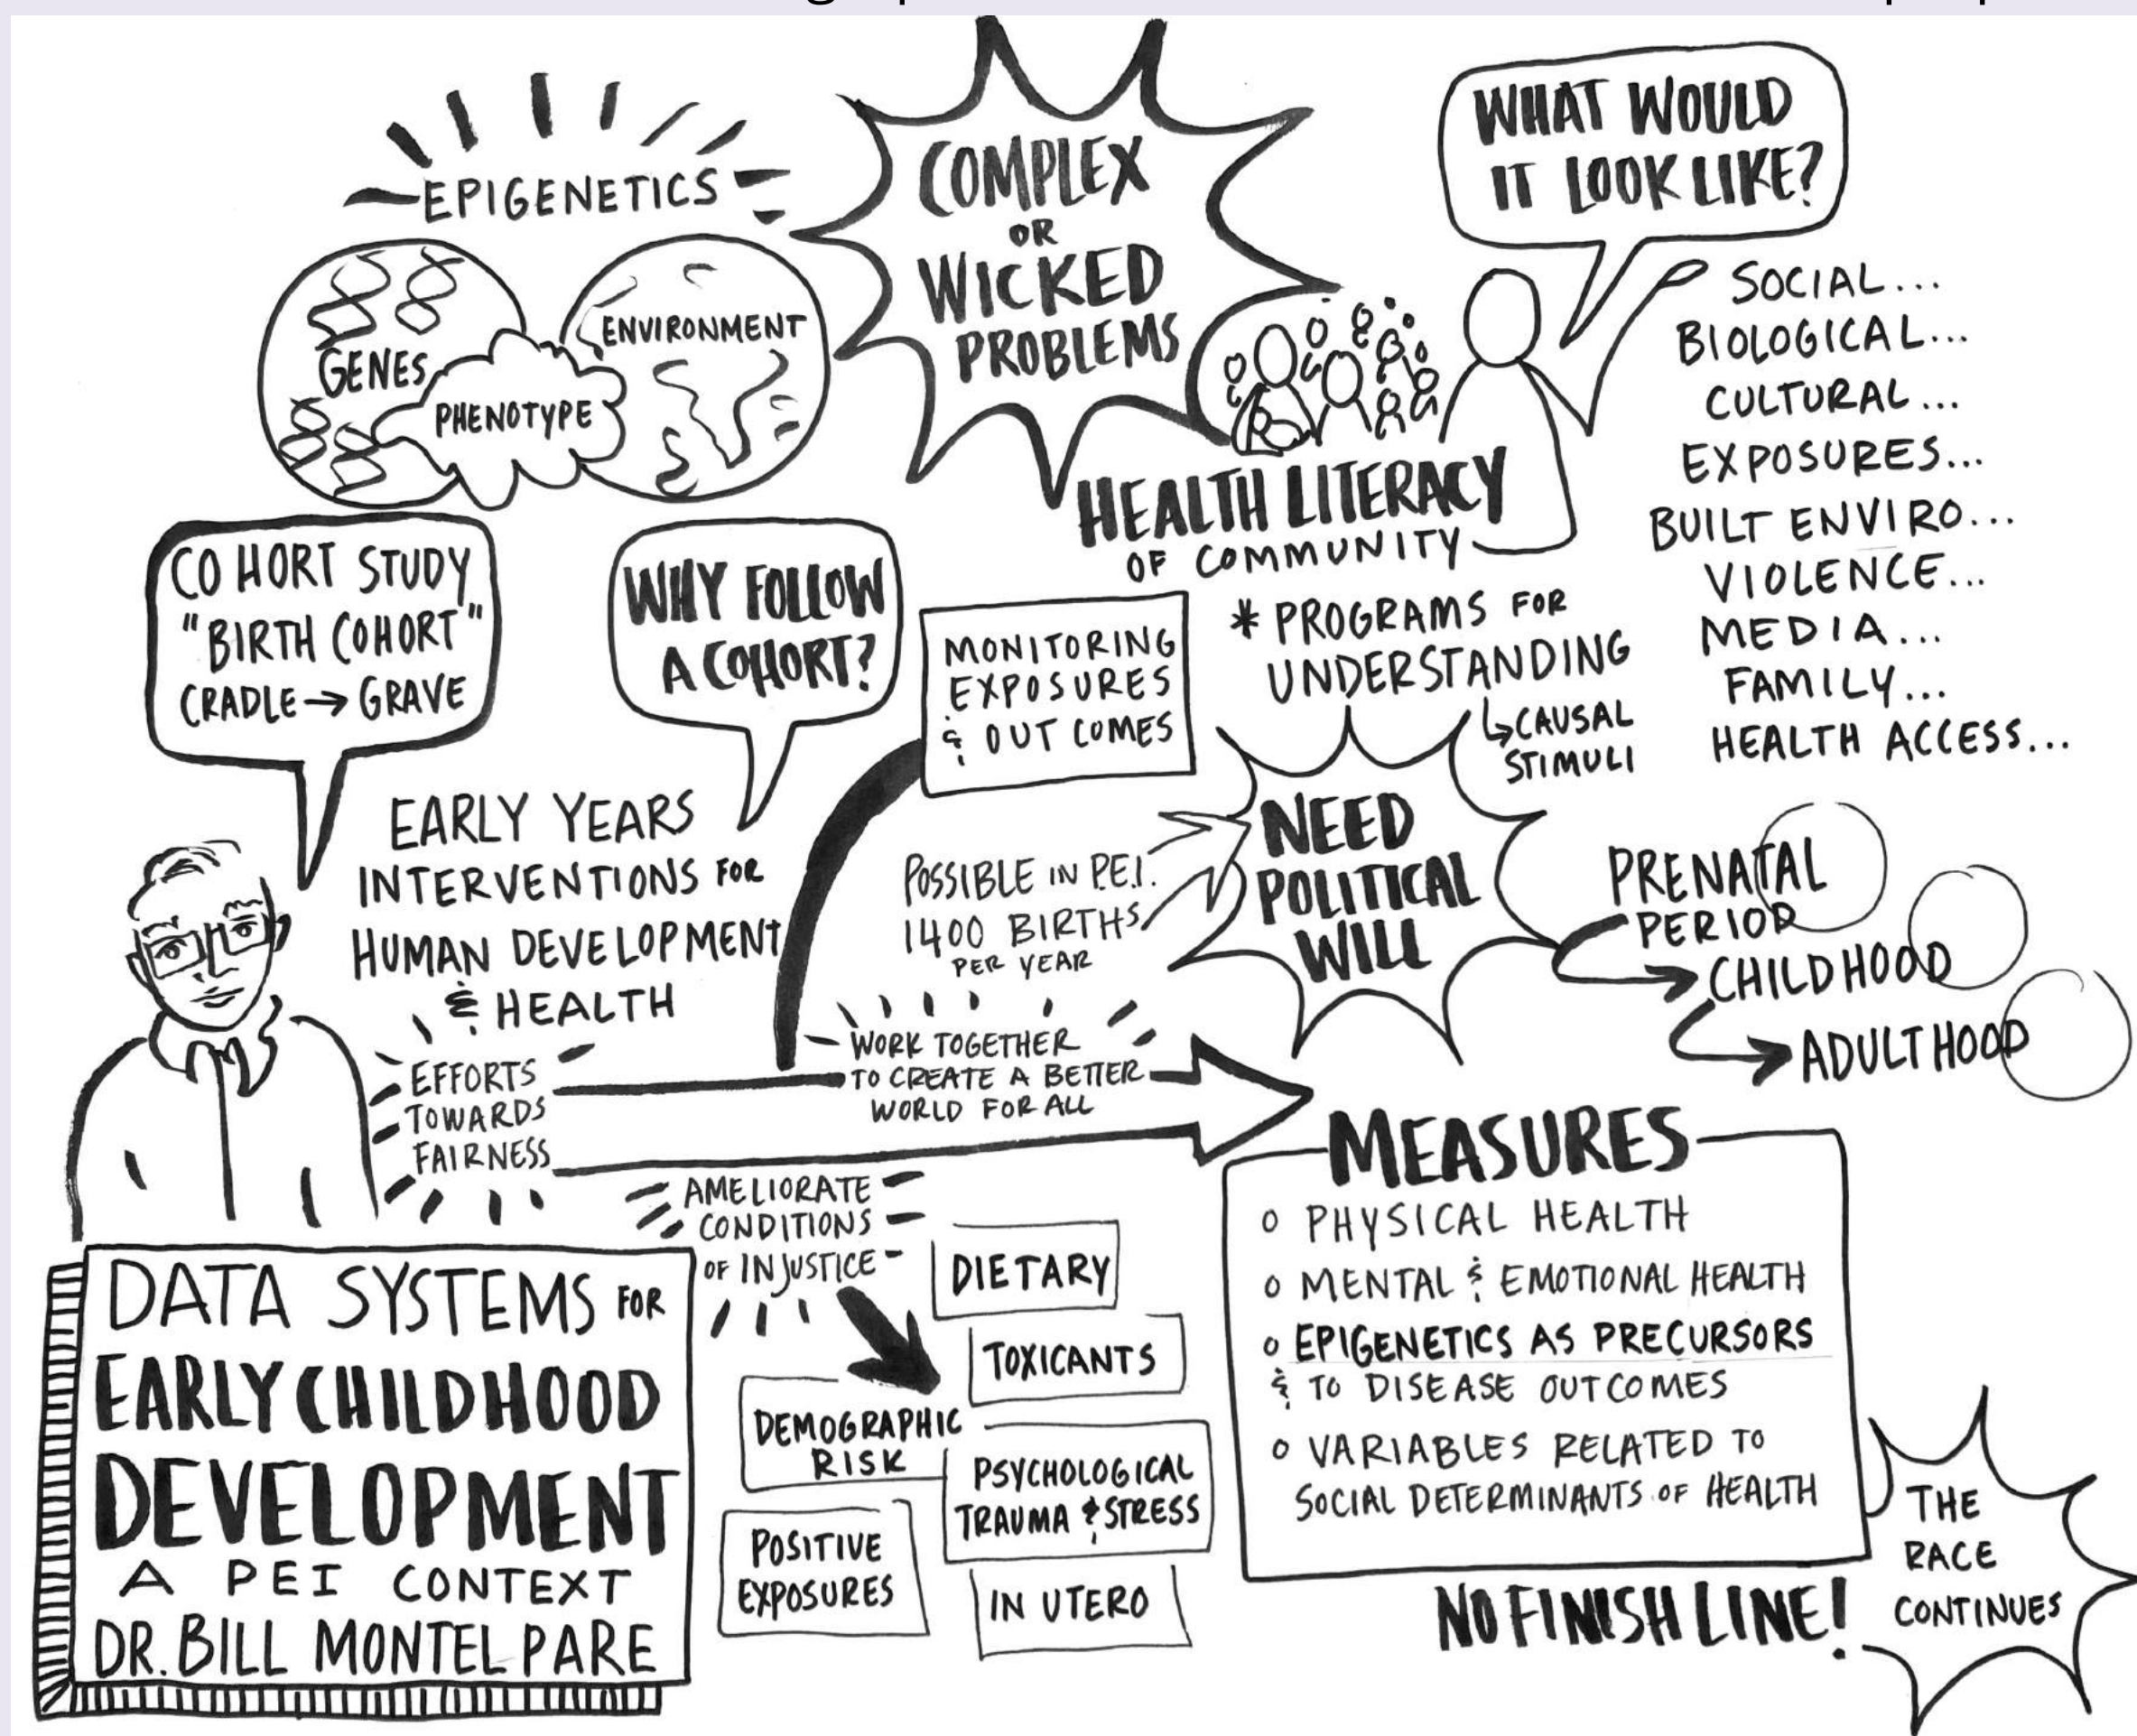 EPIGENETICS
GENES
ENVIRONMENT
PHENOTYPE
COMPLEX
OR
WICKED
PROBLEMS
WHAT WOULD
IT LOOK LIKE?
SOCIAL...
BIOLOGICAL...
CULTURAL...
EXPOSURES...
BUILT ENVIRO...
VIOLENCE...
MEDIA...
FAMILY...
HEALTH ACCESS...
HEALTH LITERACY
OF COMMUNITY
* PROGRAMS FOR
UNDERSTANDING
↳ CAUSAL
STIMULI
COHORT STUDY
"BIRTH COHORT"
CRADLE → GRAVE
WHY FOLLOW
A COHORT?
MONITORING
EXPOSURES
& OUTCOMES
EARLY YEARS
INTERVENTIONS FOR
HUMAN DEVELOPMENT
& HEALTH
POSSIBLE IN P.E.I.
1400 BIRTHS
PER YEAR
NEED
POLITICAL
WILL
PRENATAL
PERIOD
CHILDHOOD
ADULTHOOD
EFFORTS
TOWARDS
FAIRNESS
WORK TOGETHER
TO CREATE A BETTER
WORLD FOR ALL
AMELIORATE
CONDITIONS
OF INJUSTICE
DIETARY
TOXICANTS
DEMOGRAPHIC
RISK
PSYCHOLOGICAL
TRAUMA & STRESS
POSITIVE
EXPOSURES
IN UTERO
MEASURES
o PHYSICAL HEALTH
o MENTAL & EMOTIONAL HEALTH
o EPIGENETICS AS PRECURSORS
& TO DISEASE OUTCOMES
o VARIABLES RELATED TO
SOCIAL DETERMINANTS OF HEALTH
NO FINISH LINE!
THE
RACE
CONTINUES
DATA SYSTEMS FOR
EARLY CHILDHOOD
DEVELOPMENT
A PEI CONTEXT
DR. BILL MONTELPARE